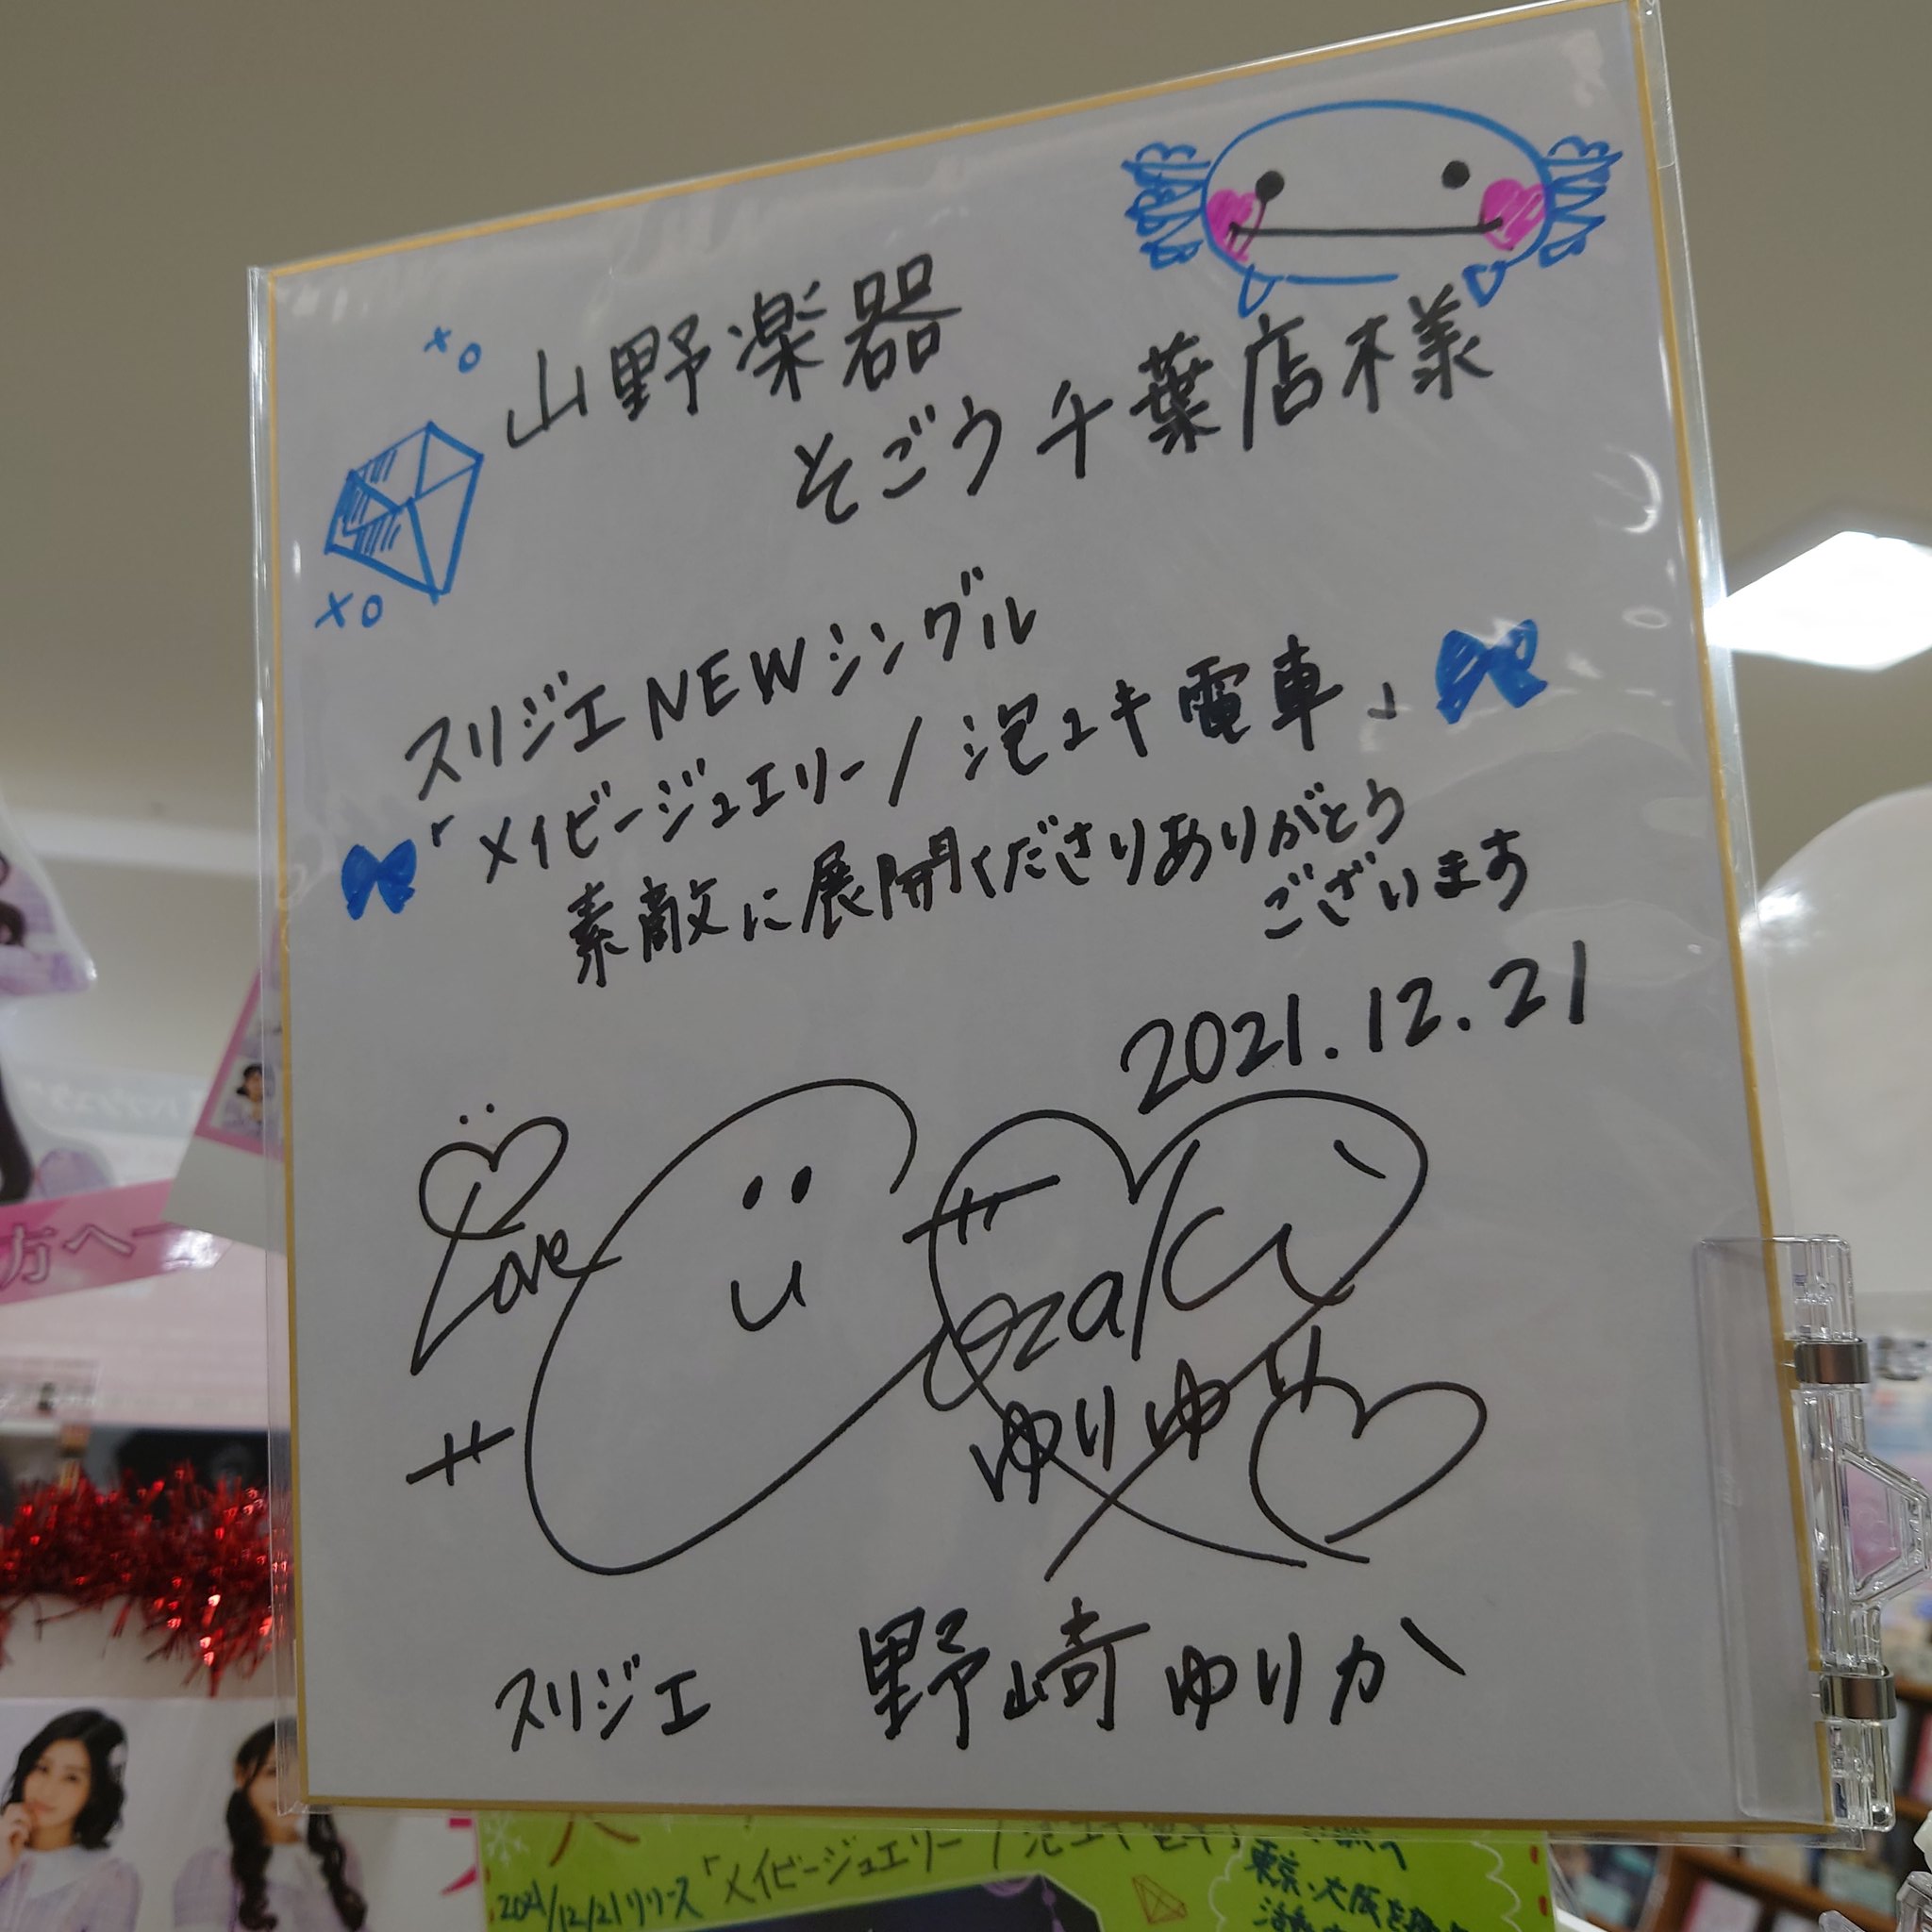 山野楽器
そごう千葉店様
xo
xo
スリジエNEWシングル
「メイビージュエリー/泡ユキ電車」
素敵に展開くださりありがとう
ございます
2021.12.21
Love
ozaki
ゆりゆり
スリジエ 野崎ゆりか
方へ
2021/12/21リリース「メイビージュエリー/泡ユキ電車」
東京・大阪を